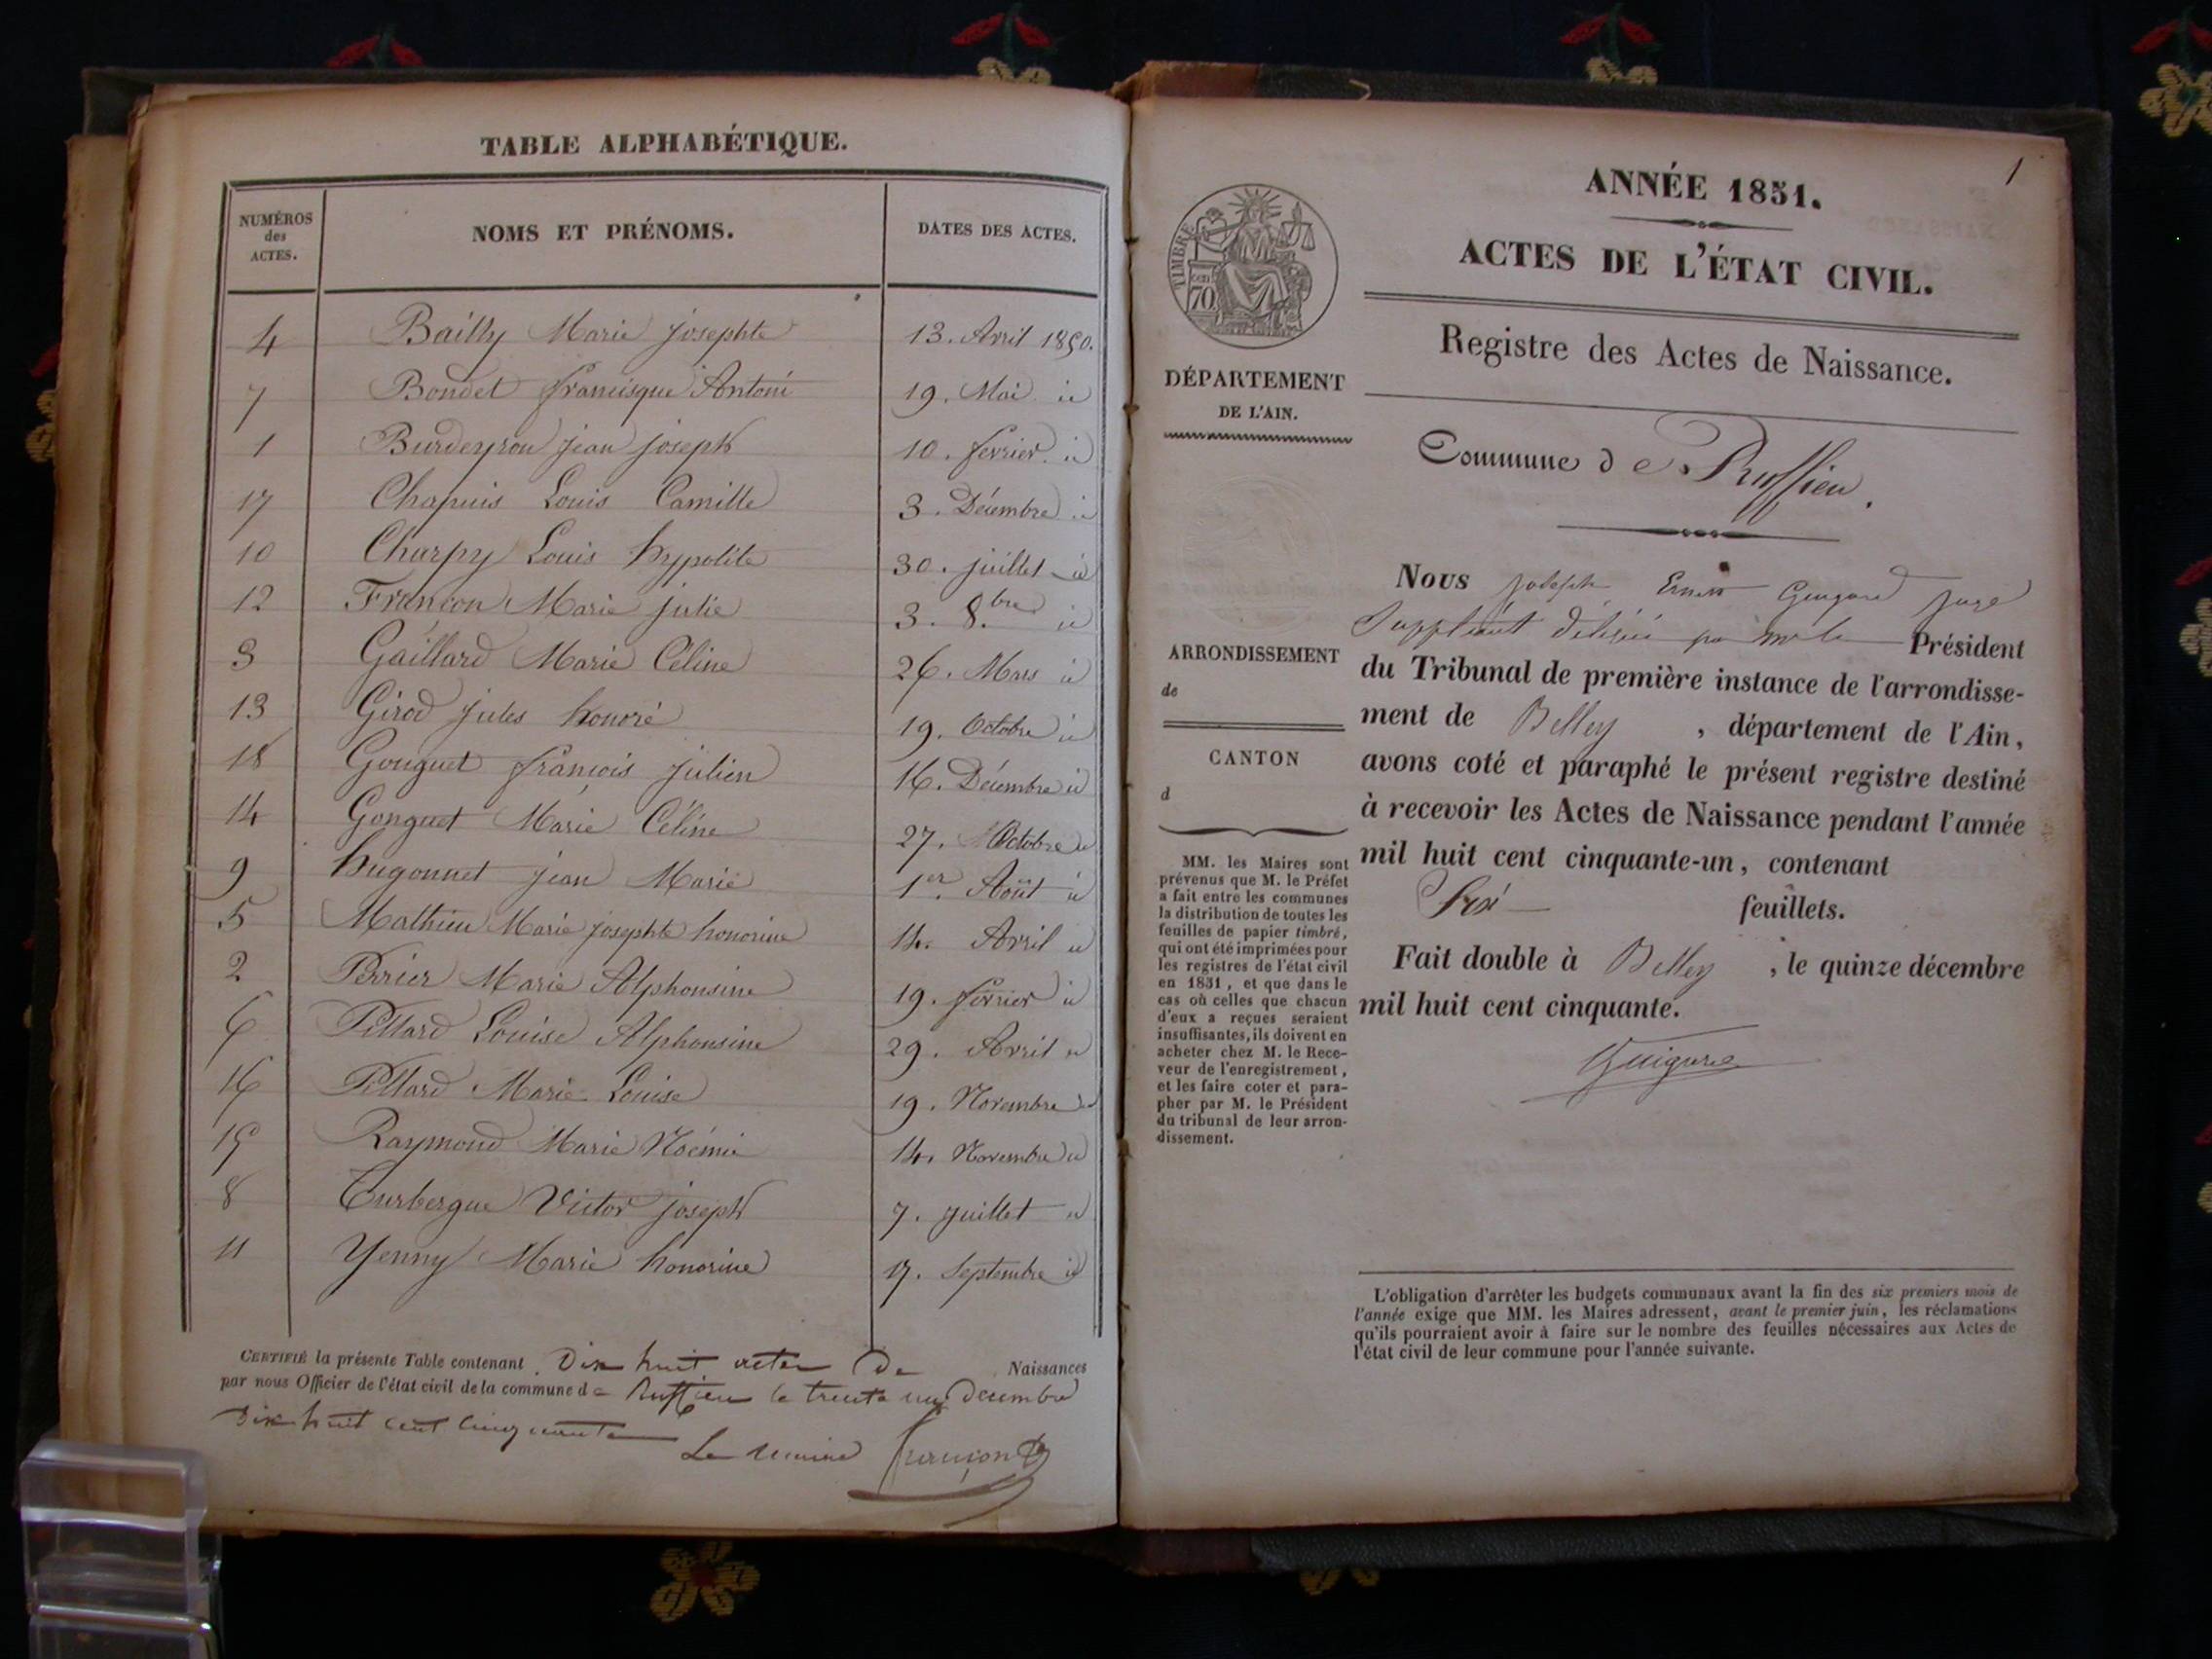 TABLE ALPHABÉTIQUE.
NUMÉROS
des
ACTES.
NOMS ET PRÉNOMS.
DATES DES ACTES.
4 Bailly Marie Josephte 13. Avril 1850.
7 Bondet francisque Antoni 19. Mai id
1 Burdeyron jean joseph 10. fevrier id
17 Chapuis Louis Camille 3. Décembre id
10 Charpy Louis hypolite 30. juillet id
12 Françon Marie julie 3. 8.bre id
3 Gaillard Marie Céline 26. Mars id
13 Girod jules honoré 19. Octobre id
18 Gonguet françois julien 16. Décembre id
14 Gonguet Marie Céline 27. Octobre id
9 hugonnet jean Marie 1er. Août id
5 Mathieu Marie josephte honorine 14. Avril id
2 Perrier Marie Alphonsine 19. fevrier id
6 Pillard Louise Alphonsine 29. Avril id
16 Pillard Marie Louise 19. Novembre id
15 Raymond Marie Noémie 14. Novembre id
8 Turbergue Victor joseph 7. juillet id
11 Yenny Marie honorine 17. Septembre id
CERTIFIÉ la présente Table contenant Dix huit actes De Naissances
par nous Officier de l'état civil de la commune de Ruffieu le trente un Decembre
Dix huit cent cinquante
Le maire françon
1
TIMBRE
70
DÉPARTEMENT
DE L'AIN.
ARRONDISSEMENT
de
CANTON
d
MM. les Maires sont
prévenus que M. le Préfet
a fait entre les communes
la distribution de toutes les
feuilles de papier timbré,
qui ont été imprimées pour
les registres de l'état civil
en 1851, et que dans le
cas où celles que chacun
d'eux a reçues seraient
insuffisantes, ils doivent en
acheter chez M. le Rece-
veur de l'enregistrement,
et les faire coter et para-
pher par M. le Président
du tribunal de leur arron-
dissement.
ANNÉE 1851.
ACTES DE L'ÉTAT CIVIL.
Registre des Actes de Naissance.
Commune de Ruffieu.
NOUS joseph Ernest Guigard juge
Suppléant délégué par Mr le Président
du Tribunal de première instance de l'arrondisse-
ment de Belley, département de l'Ain,
avons coté et paraphé le présent registre destiné
à recevoir les Actes de Naissance pendant l'année
mil huit cent cinquante-un, contenant
feuillets.
Fait double à Belley, le quinze décembre
mil huit cent cinquante.
L'obligation d'arrêter les budgets communaux avant la fin des six premiers mois de
l'année exige que MM. les Maires adressent, avant le premier juin, les réclamations
qu'ils pourraient avoir à faire sur le nombre des feuilles nécessaires aux Actes de
l'état civil de leur commune pour l'année suivante.